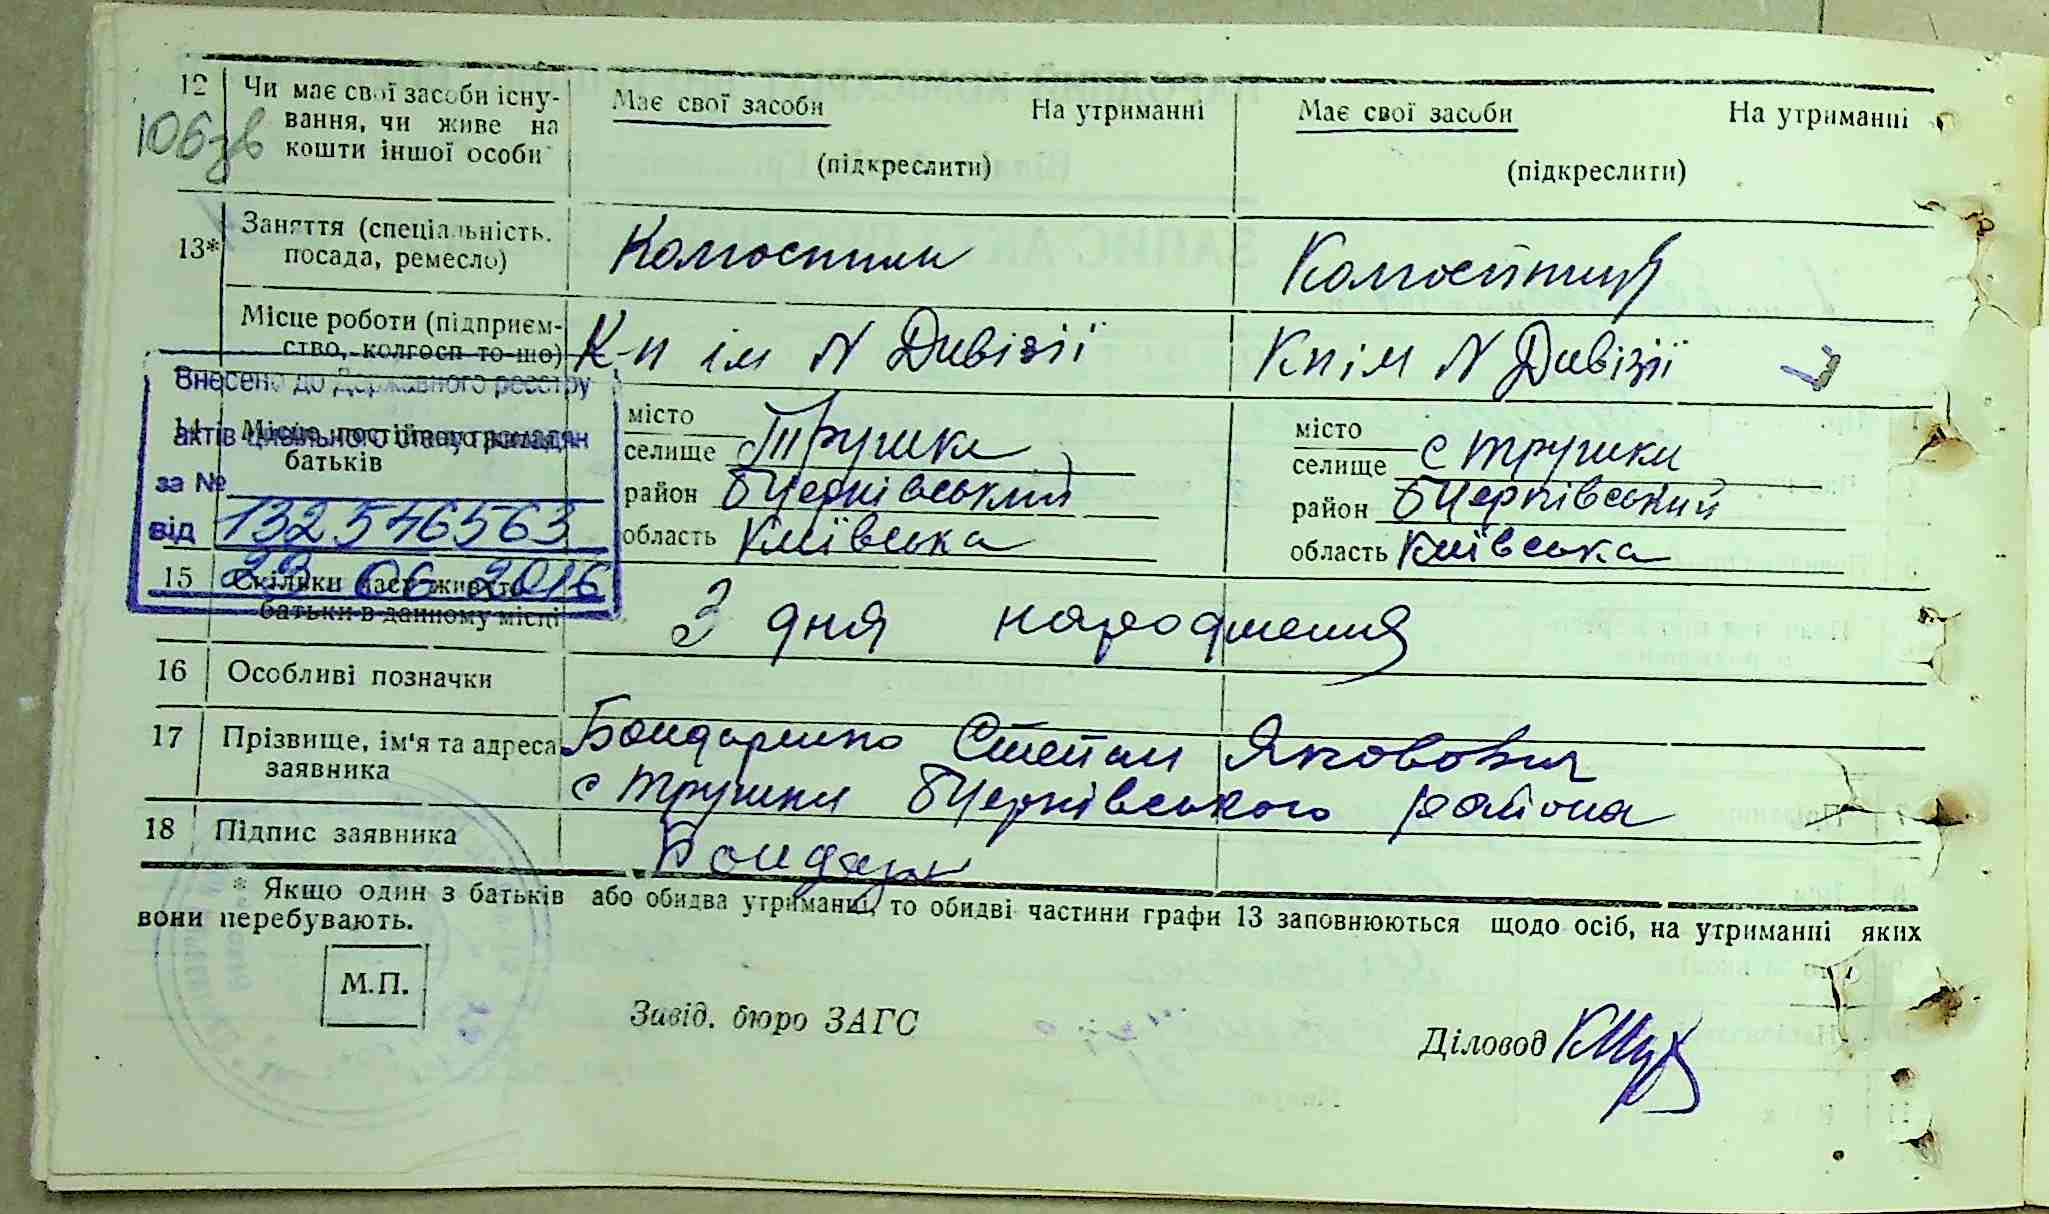 12 Чи має свої засоби існу-
вання, чи живе на
кошти іншої особи
Має свої засоби На утриманні
(підкреслити)
Має свої засоби На утриманні
(підкреслити)
106зв
13* Заняття (спеціальність.
посада, ремесло)
Колгоспник
Місце роботи (підприєм-
ство, колгосп то-що)
К-п ім N Дивізії
Кпім N Дивізії
Внесено до Державного реєстру
актів цивільного стану громадян
за №
132546563
від
23 06 2016
14 Місце постійного
батьків
місто
селище Трушки
район БЦерківський
область Київська
місто
селище с трушки
район БЦерківський
область Київська
15 Скільки часу живуть
батьки в данному місці
З дня народження
16 Особливі позначки
17 Прізвище, ім'я та адреса
заявника
Бондаренко Степан Якович
с трушки БЦерківського района
18 Підпис заявника
* Якщо один з батьків або обидва утриманці, то обидві частини графи 13 заповнюються щодо осіб, на утриманні яких
вони перебувають.
М.П.
Завід. бюро ЗАГС
Діловод